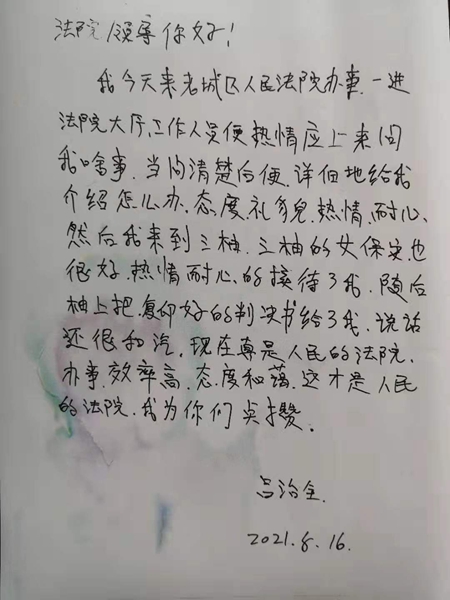 法院领导你好！
我今天来老城区人民法院办事，一进
法院大厅，工作人员便热情应上来问
我啥事，当问清楚白便，详细地给我
介绍怎么办，态度礼貌，热情，耐心、
然后我来到三楼，三楼的女保安也
很好，热情耐心的接待了我，随后
楼上把，复印好的判决书给了我，说话
还很和汽，现在真是人民的法院，
办事，效率高，态度和蔼，这才是人民
的法院，我为你们点攒。
吕治全
2021.8.16.